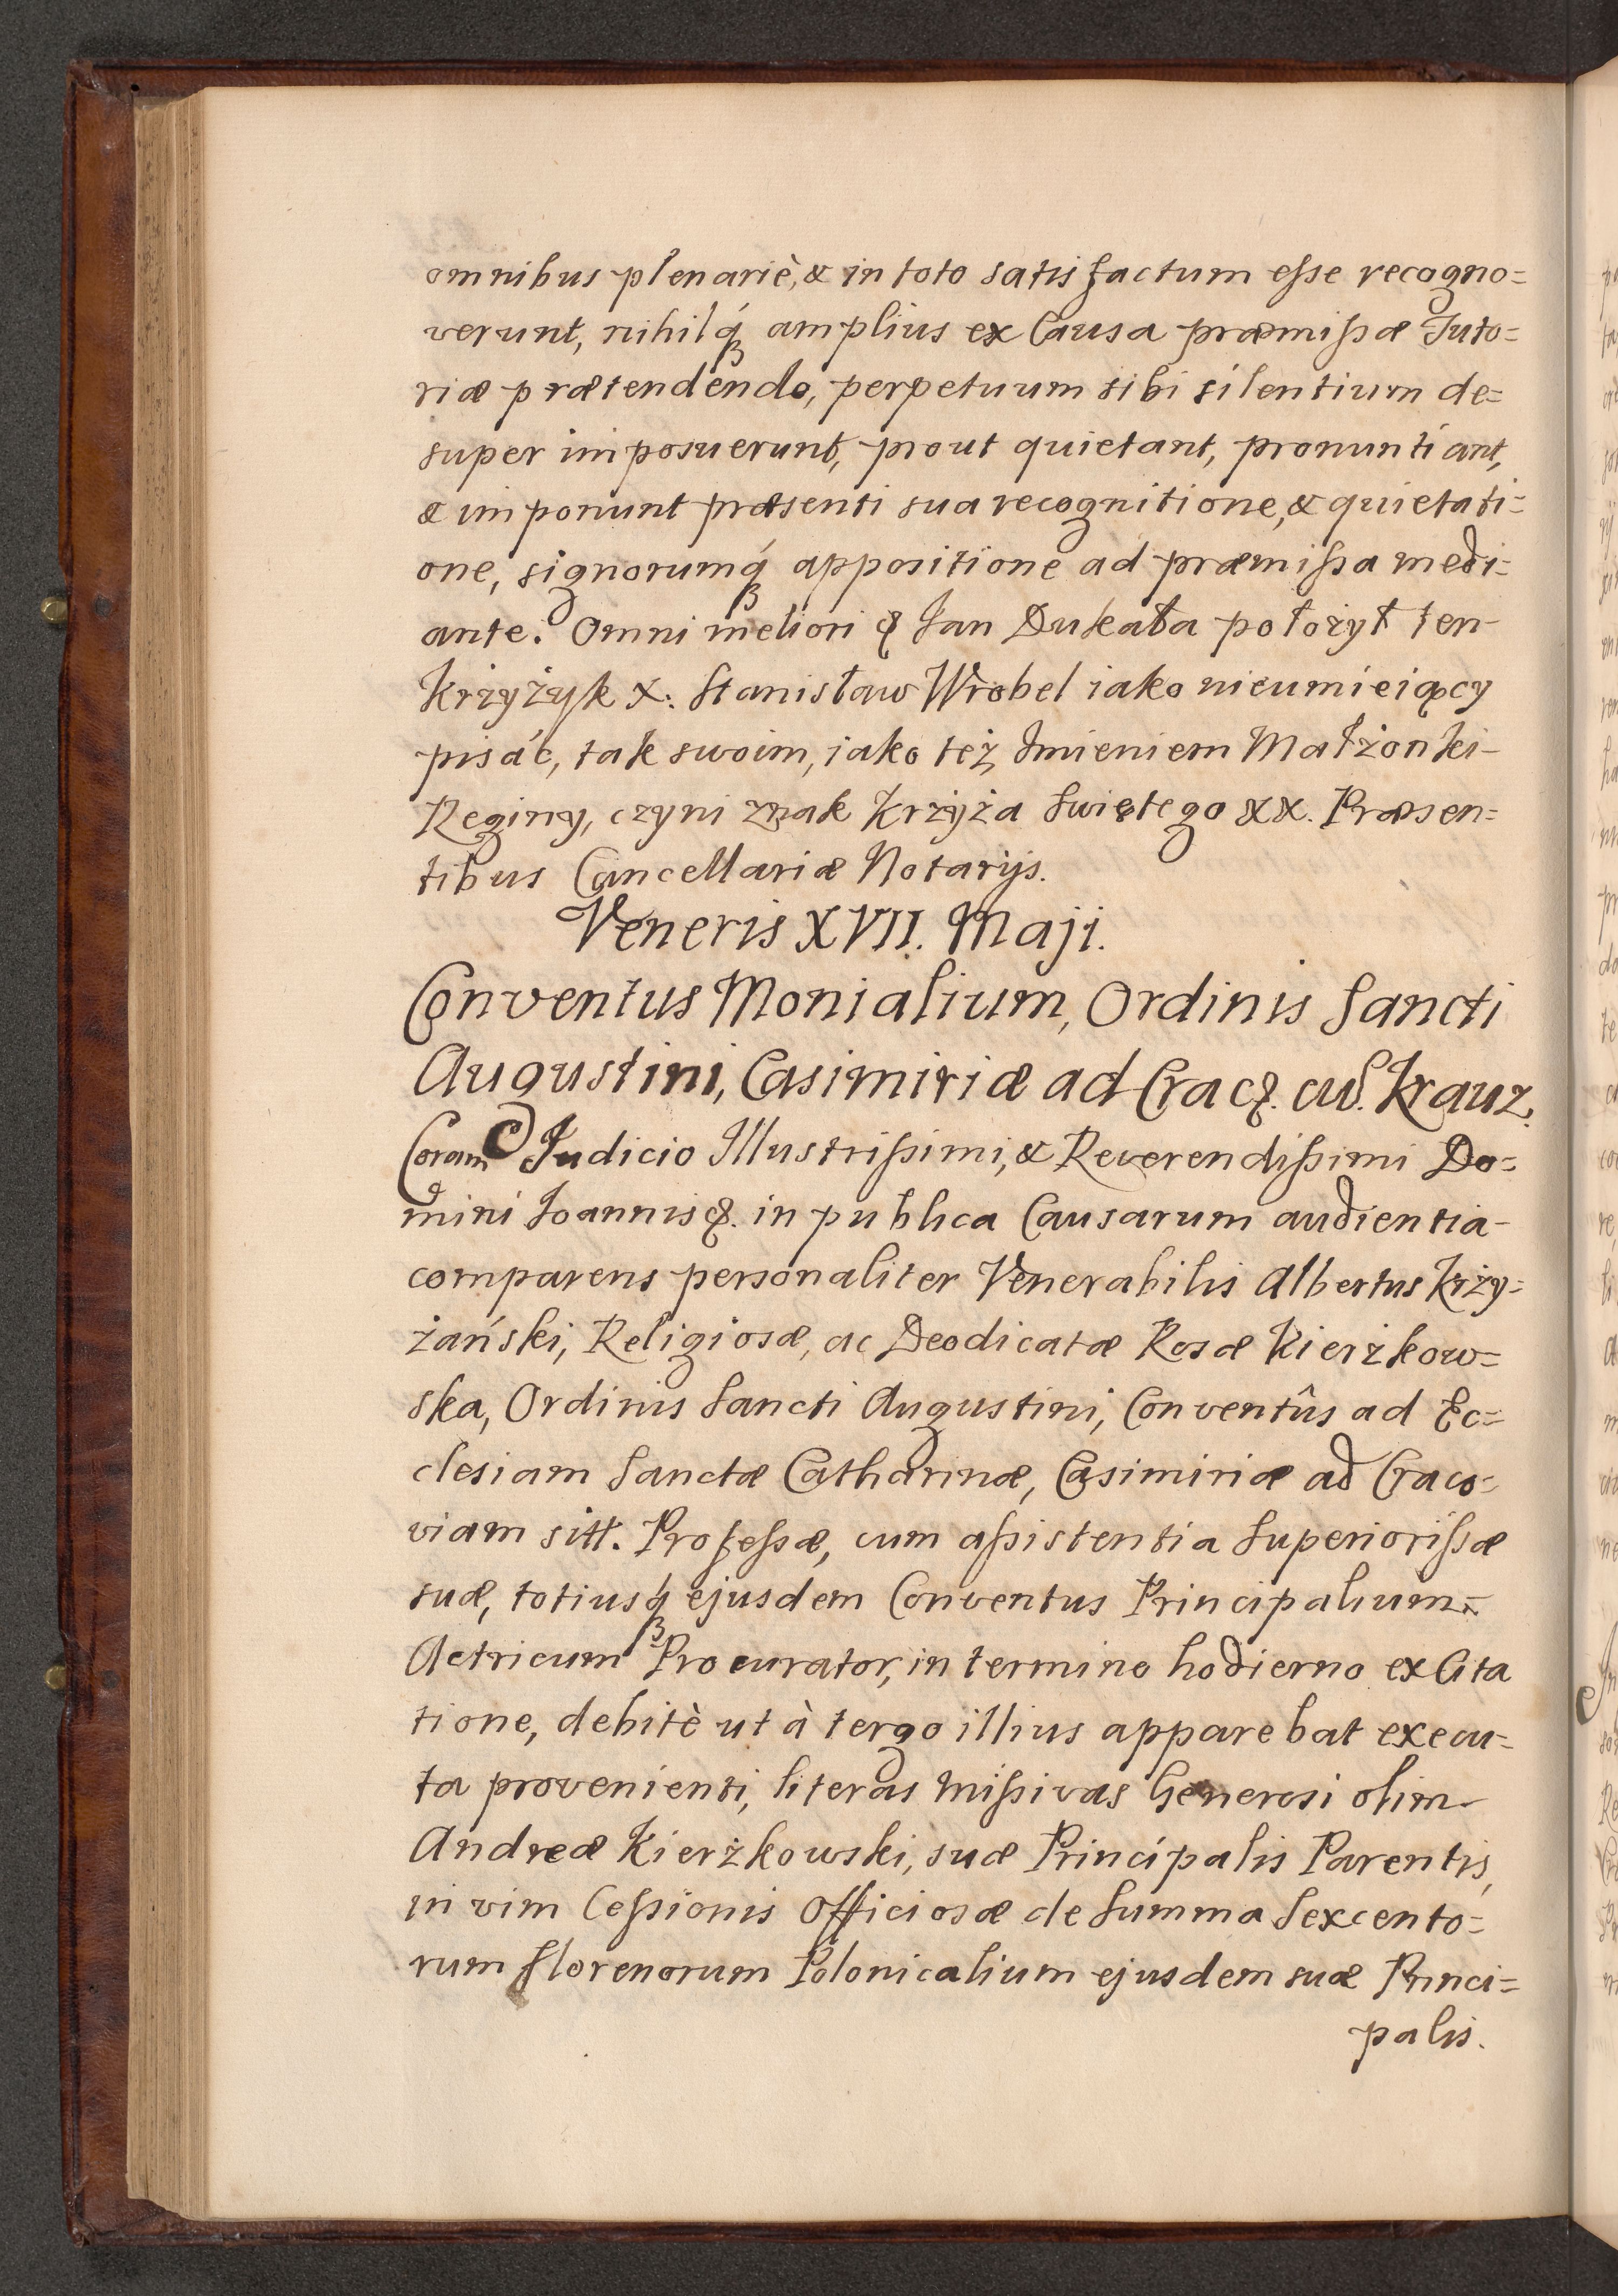 omnibus plenariè, & in toto satisfactum eſse recogno=
verunt, nihilq́ꝫ amplius ex Causa præmiſsæ Tuto=
riæ prætendendo, perpetuum sibi silentium de=
super imposuerunt, prout quietant, pronuntiant,
& imponunt præsenti sua recognitione, & quietati=
one, signorumq́ꝫ appositione ad præmiſsa medi=
ante. Omni meliori &. Jan Dukała położył ten
Krzyżyk X. Stanisław Wrobel iako nieumieiący
pisác, tak swoim, iako też Jmieniem Małżonki
Reginy, czyni znak Krzyża Swiętego XX. Præsen=
tibus Cancellariæ Notarijs.
Veneris XVII. Maji.
Conventus Monialium, Ordinis Sancti
Augustini, Casimiriæ ad Crac&. cuſ. Krauz.
Coram Judicio Illustriſsimi, & Reverendiſsimi Do=
mini Joannis &. in publica Causarum audientia
comparens personaliter Venerabilis Albertus Krzy=
żański, Religiosæ, ac Deodicatæ Rosæ Kierżkow=
ska, Ordinis Sancti Augustini, Conventûs ad Ec=
clesiam Sanctæ Catharinæ, Casimiriæ ad Craco=
viam sitt. Profeſsæ, cum aſsistentia Superioriſsæ
suæ, totiusq́ꝫ ejusdem Conventus Principalium
Actricum Procurator, in termino hodierno ex Cita
tione, debitè ut à tergo illius apparebat execu=
ta provenienti, literas Miſsivas Generosi olim
Andreæ Kierżkowski, suæ Principalis Parentis,
in vim Ceſsionis Officiosæ de Summa Sexcento=
rum florenorum Polonicalium ejusdem suæ Princi=
palis.